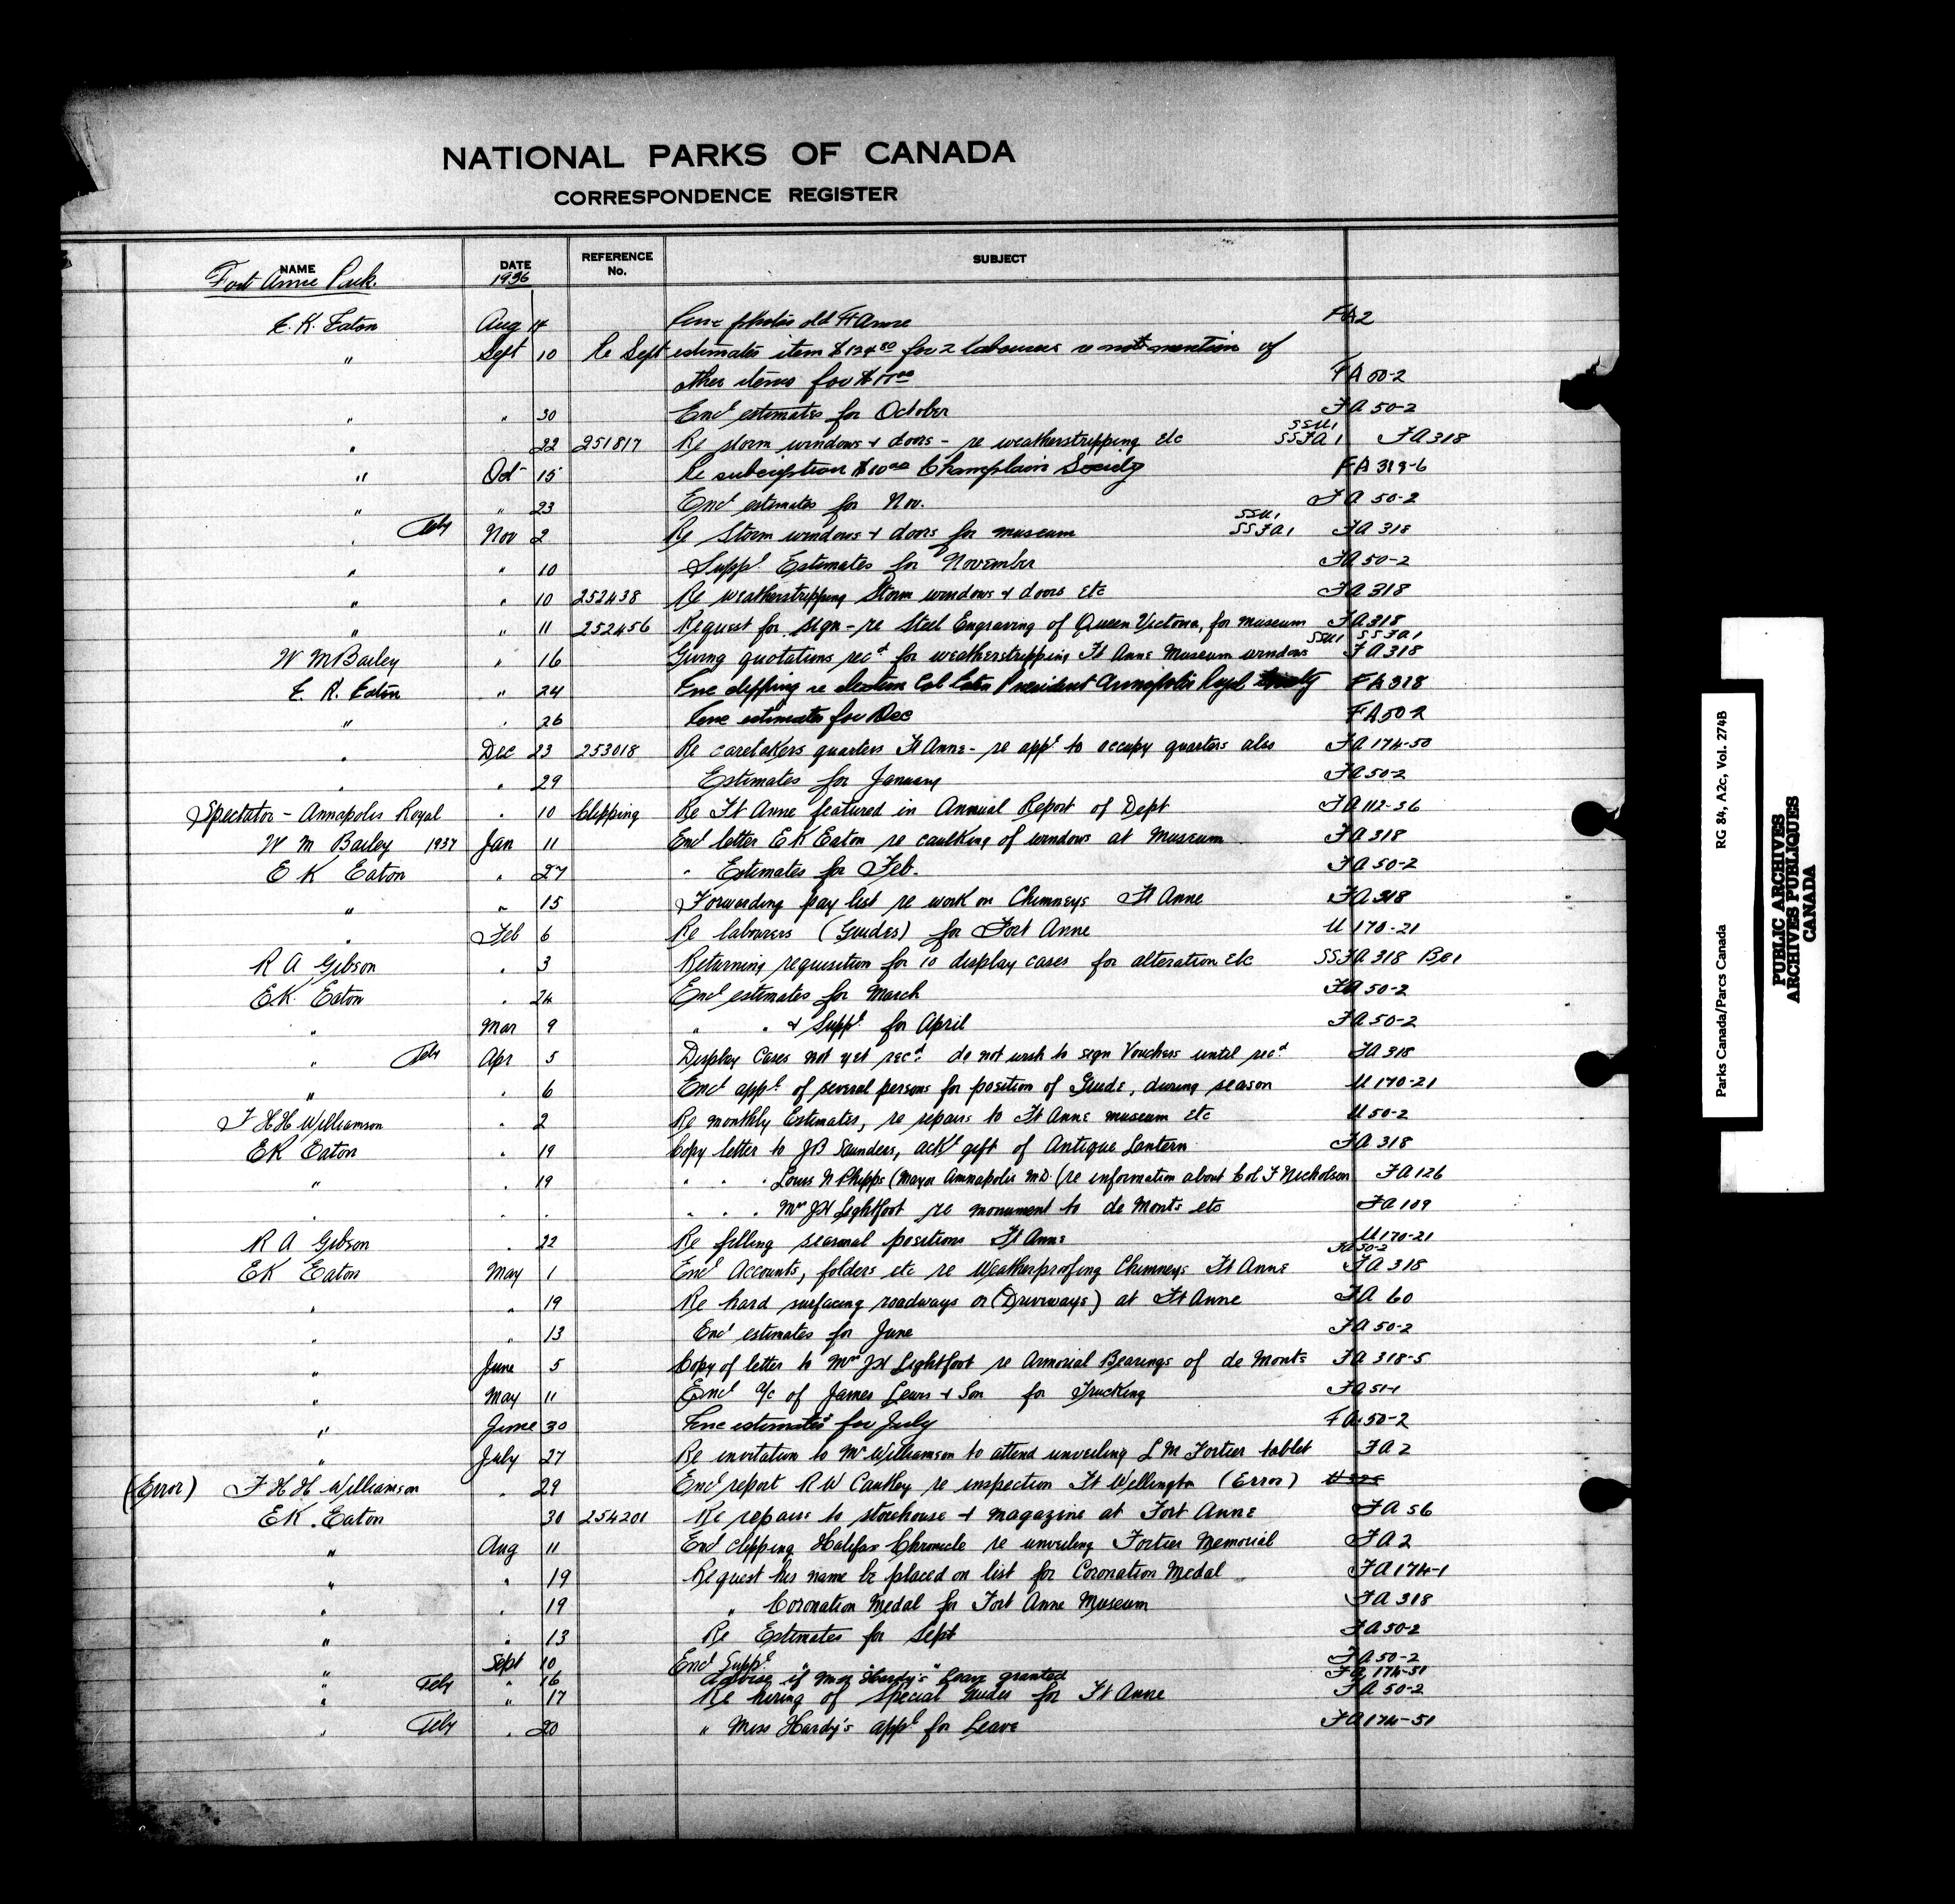 NATIONAL PARKS OF CANADA
CORRESPONDENCE REGISTER
NAME DATE REFERENCE No. SUBJECT
Fort Anne Park. 1936
E. K. Eaton Aug 14 Enc photos old Ft Anne FA 2
" Sept 10 Re Sept estimates item $124.80 for 2 labourers re not mention of
other items for FA 50-2
" " 30 Encl estimates for October FA 50-2
" 22 251817 Re storm windows & doors - re weatherstripping etc SSU1 SSFA1 FA 318
" Oct 15 Re subcription $10.00 Champlain Society FA 319-6
" " 23 Encl estimates for Nov. FA 50-2
" Tely Nov 2 Re Storm windows & doors for museum SSU1 SSFA1 FA 318
" " 10 Suppl Estimates for November FA 50-2
" " 10 252438 Re weatherstripping Storm windows & doors etc FA 318
" " 11 252456 Request for sign - re Steel Engraving of Queen Victoria, for museum FA 318
W M Bailey " 16 Giving quotations recd for weatherstripping Ft Anne Museum windows SSU1 SSFA1 FA 318
E. K. Eaton " 24 Enc clipping re election Col Eaton President Annapolis Royal FA 318
" " 26 Enc estimates for Dec FA 50-2
" Dec 23 253018 Re caretakers quarters Ft Anne - re appl to occupy quarters also FA 174-50
" " 29 Estimates for January FA 50-2
Spectator - Annapolis Royal " 10 Clipping Re Ft Anne featured in Annual Report of Dept FA 112-36
W M Bailey 1937 Jan 11 Encl letter E K Eaton re caulking of windows at Museum FA 318
E K Eaton " 27 " Estimates for Feb. FA 50-2
" " 15 Forwarding pay list re work on Chimneys Ft Anne FA 318
" Feb 6 Re labourers (Guides) for Fort Anne U 170-21
R A Gibson " 3 Returning requisition for 10 display cases for alteration etc SSFA 318 BE1
E K. Eaton " 24 Encl estimates for March FA 50-2
" Mar 9 " " & Suppl for April FA 50-2
" Tely Apr 5 Display Cases not yet recd. do not wish to sign Vouchers until recd FA 318
" " 6 Encl appl. of several persons for position of Guide, during season U 170-21
F H H Williamson " 2 Re monthly Estimates, re repairs to Ft Anne museum etc U 50-2
E K Eaton " 19 Copy letter to J B Saunders, ackg gift of Antique Lantern FA 318
" " 19 " " " Louis N Phipps (Mayor Annapolis M.D. (re information about Col F Nicholson FA 126
" " " " " " Mrs J H Lightfoot re monument to de Monts etc FA 109
R A Gibson " 22 Re filling seasonal positions Ft Anne U 170-21
FA 50-2
E K Eaton May 1 Encl Accounts, folders etc re Weatherproofing Chimneys Ft Anne FA 318
" " 19 Re hard surfacing roadways or (Driveways) at Ft Anne FA 60
" " 13 Encl estimates for June FA 50-2
" June 5 Copy of letter to Mrs J H Lightfoot re Armorial Bearings of de Monts FA 318-5
" May 11 Encl a/c of James Lewis & Son for Trucking FA 51-1
" June 30 Enc estimates for July FA 50-2
" July 27 Re invitation to Mr Williamson to attend unveiling L M Fortier tablet FA 2
(Error) F H H Williamson " 29 Encl report R W Cautley re inspection Ft Wellington (Error)
E K. Eaton 30 254201 Re repairs to storehouse & magazine at Fort Anne FA 56
" Aug 11 Encl clipping Halifax Chronicle re unveiling Fortier Memorial FA 2
" " 19 Request his name be placed on list for Coronation Medal FA 174-1
" " 19 " Coronation Medal for Fort Anne Museum FA 318
" " 13 Re Estimates for Sept FA 50-2
Sept 10 Encl Suppl " " " FA 50-2
" Tely " 16 Advise if Miss Hardy's Leave granted FA 174-51
" " 17 Re hiring of special Guides for Ft Anne FA 50-2
" Tely " 20 " Miss Hardy's appl for Leave FA 174-51
Parks Canada/Parcs Canada RG 84, A2c, Vol. 274B
PUBLIC ARCHIVES
ARCHIVES PUBLIQUES
CANADA